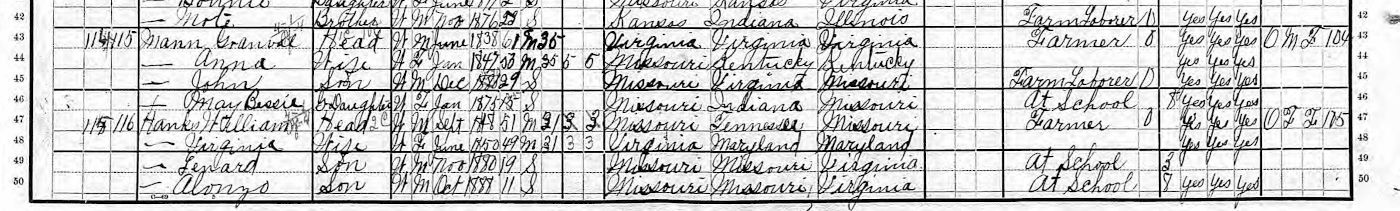 42 — Mote Brother W M Nov 1876 23 S Kansas Indiana Illinois Farm Laborer 0 yes yes yes 42
43 115 Mann Granville Head W M June 1838 61 M 35 Virginia Virginia Virginia Farmer 0 yes yes yes O M F 104 43
44 — Anna Wife W F Jan 1847 53 M 35 5 5 Missouri Kentucky Kentucky yes yes yes 44
45 — John Son W M Dec 29 S Missouri Virginia Missouri Farm Laborer 0 yes yes yes 45
46 May Bessie G Daughter W F Jan S Missouri Indiana Missouri At School 8 yes yes yes 46
47 115 116 Hanks William Head W M Sept 1848 51 M 31 3 3 Missouri Tennessee Missouri Farmer 0 yes yes yes O F F 105 47
48 — Virginia Wife W F June 1850 49 M 31 3 3 Virginia Maryland Maryland yes yes yes 48
49 — Lenard Son W M Nov 1880 19 S Missouri Missouri Virginia At School 3 yes yes yes 49
50 — Alonzo Son W M Oct 1888 11 S Missouri Missouri Virginia At School 8 yes yes yes 50